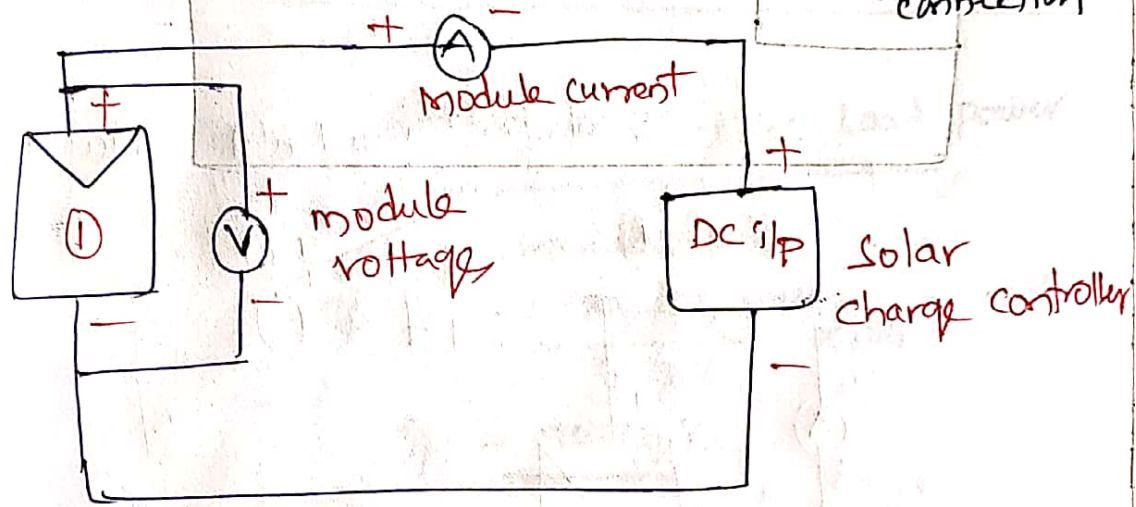 connection
+ A −
module current
+
+
1
+
V
module
voltage
−
−
DC i/p
solar
charge controller
−
Load power